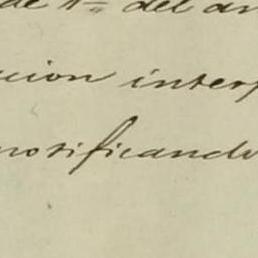 de 1ª del an
cion inter
notificando